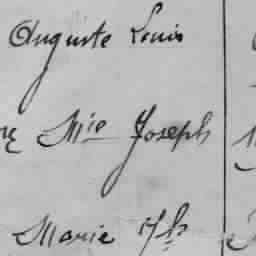 Auguste Louis
Mie Joseph
Marie Jh